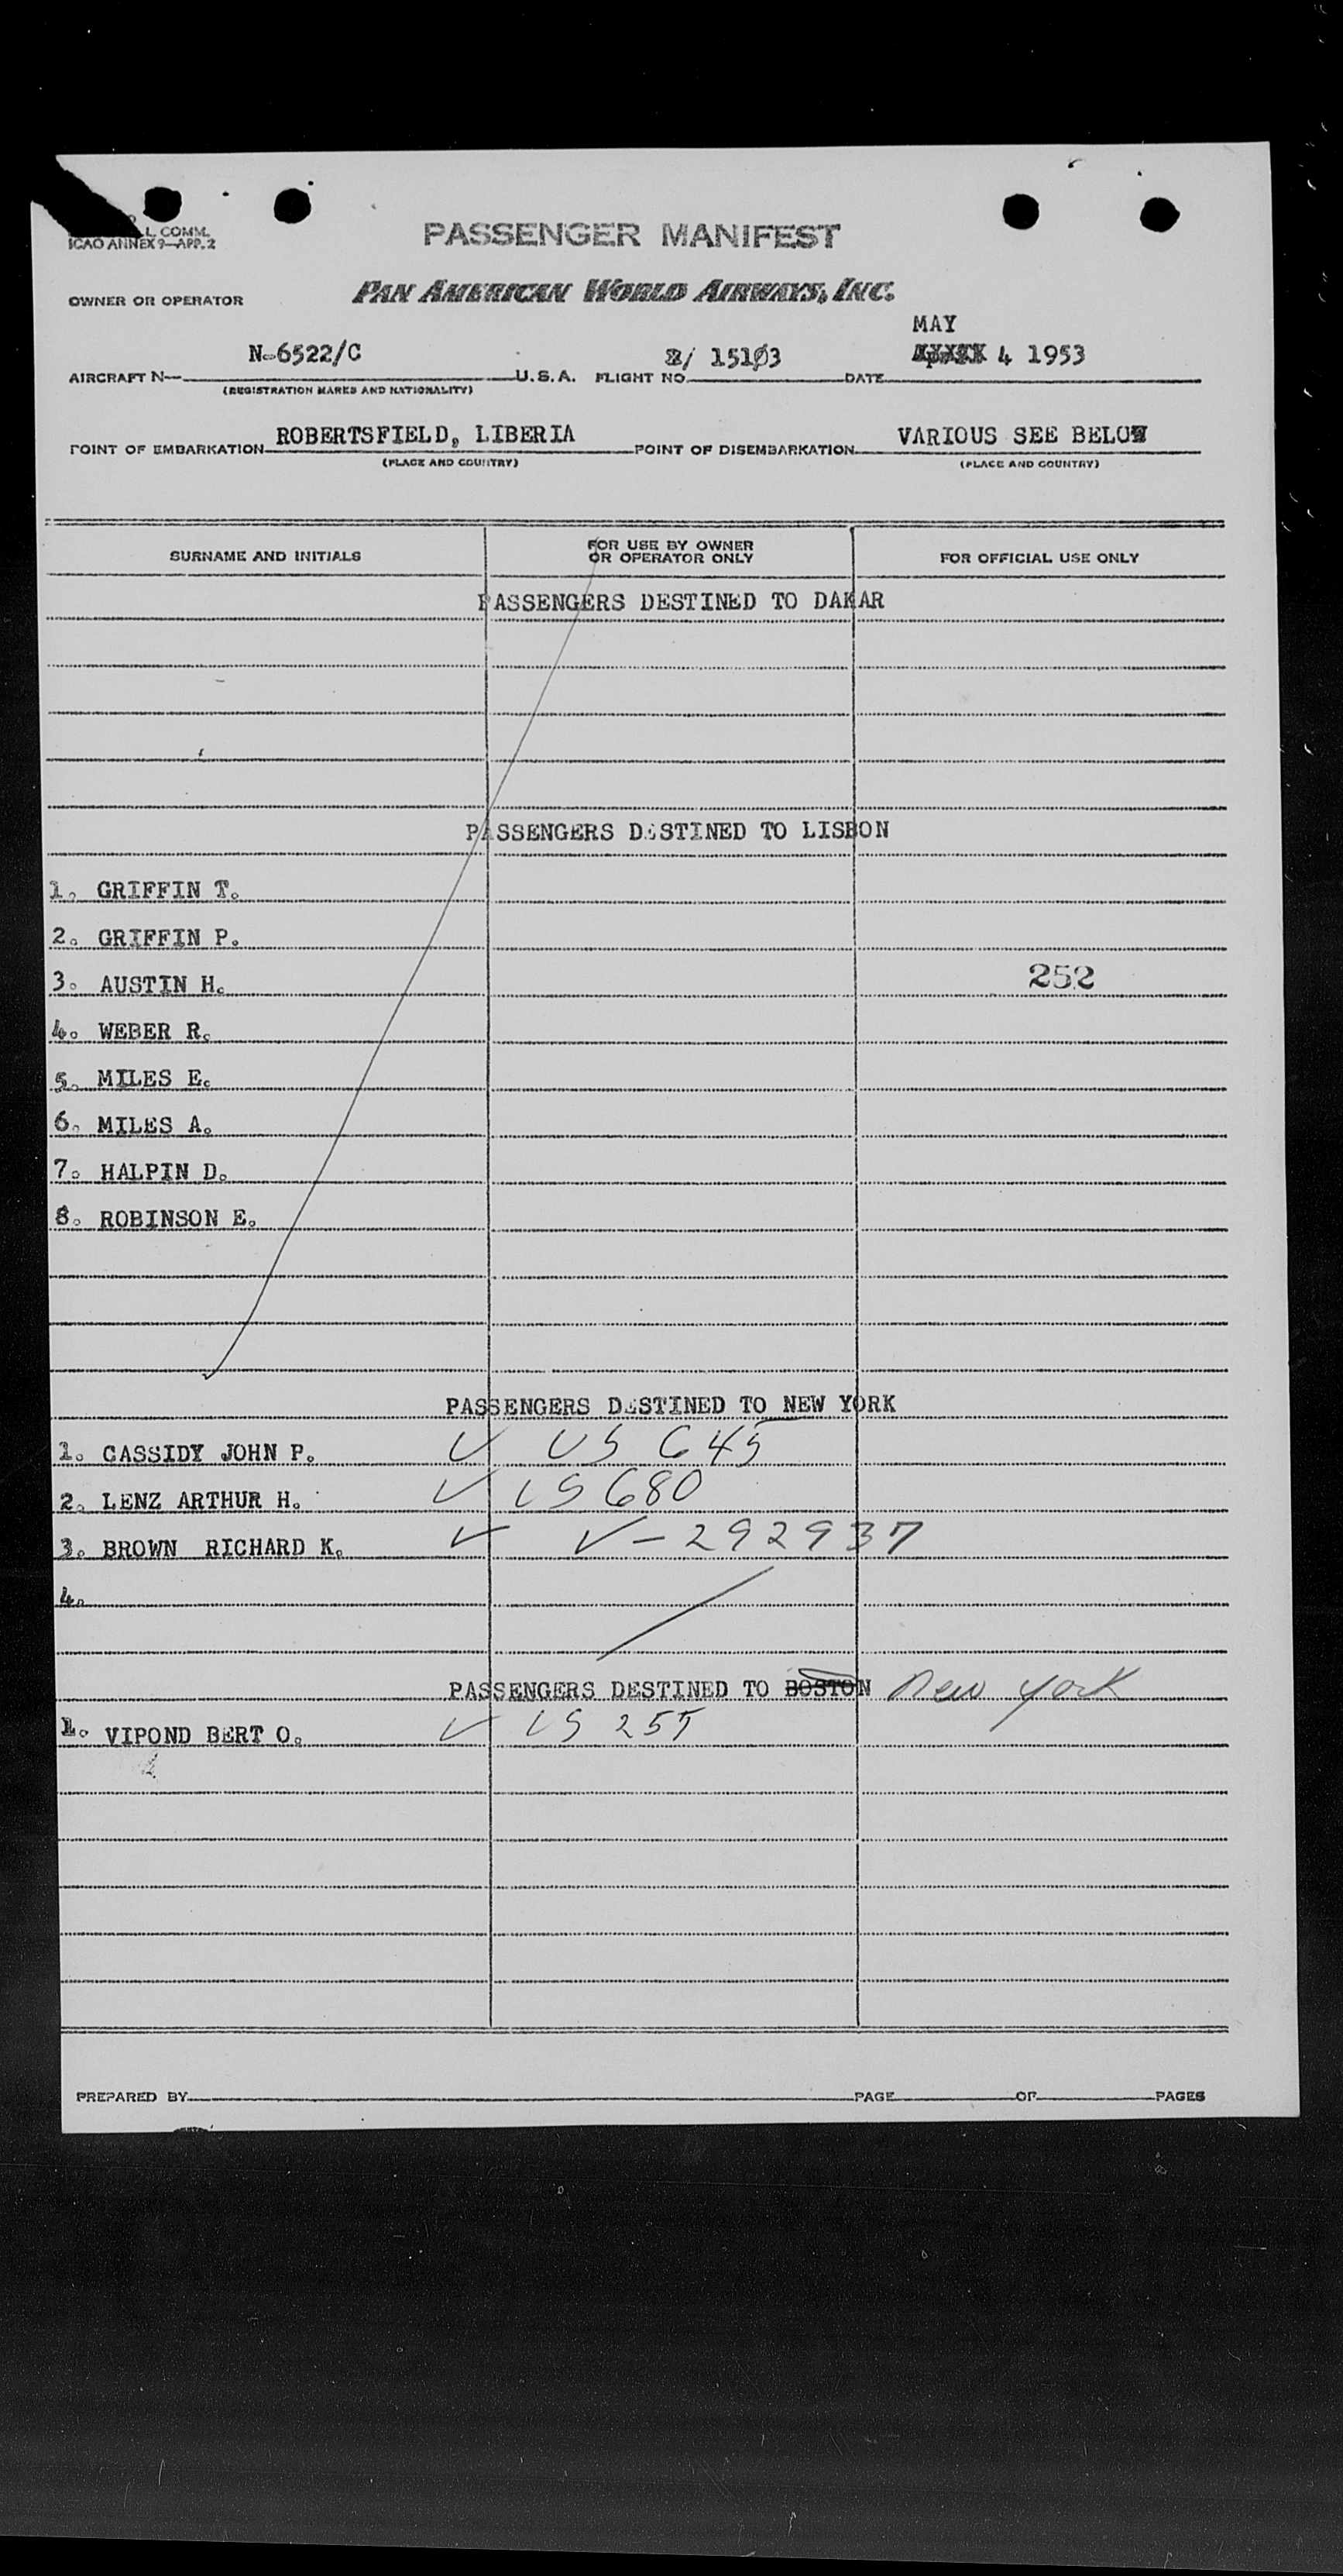 L COMM.
ICAO ANNEX 9—APP. 2
PASSENGER MANIFEST
OWNER OR OPERATOR PAN AMERICAN WORLD AIRWAYS, INC.
MAY
AIRCRAFT N— N-6522/C U.S.A. FLIGHT NO. / 15103 DATE 4 1953
(REGISTRATION MARKS AND NATIONALITY)
POINT OF EMBARKATION ROBERTSFIELD, LIBERIA POINT OF DISEMBARKATION VARIOUS SEE BELOW
(PLACE AND COUNTRY) (PLACE AND COUNTRY)
SURNAME AND INITIALS FOR USE BY OWNER OR OPERATOR ONLY FOR OFFICIAL USE ONLY
PASSENGERS DESTINED TO DAKAR
PASSENGERS DESTINED TO LISBON
1. GRIFFIN T.
2. GRIFFIN P.
3. AUSTIN H. 252
4. WEBER R.
5. MILES E.
6. MILES A.
7. HALPIN D.
8. ROBINSON E.
PASSENGERS DESTINED TO NEW YORK
1. CASSIDY JOHN P. ✓ US 645
2. LENZ ARTHUR H. ✓ US 680
3. BROWN RICHARD K. ✓ V-292937
4.
PASSENGERS DESTINED TO BOSTON New York
1. VIPOND BERT O. ✓ US 255
PREPARED BY PAGE OF PAGES